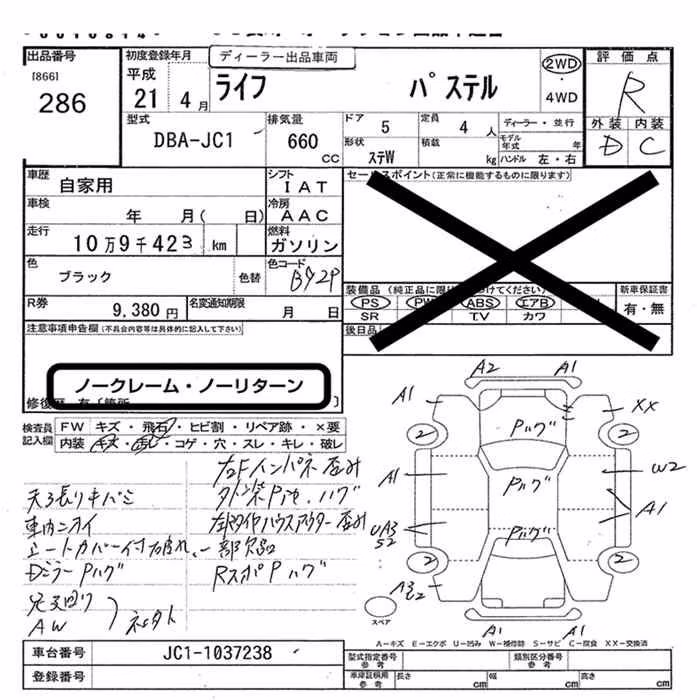 出品番号
[866]
286
初度登録年月
平成
21 4 月
ディーラー出品車両
ライフ パステル
2WD
・
4WD
評価点
R
外装 内装
D C
型式
DBA-JC1
排気量
660
CC
ドア 5
定員 4 人
ディーラー・並行
形状 ステW
積載 kg
モデル年式 年
ハンドル 左・右
車歴
自家用
シフト
IAT
セールスポイント(正常に機能するものに限ります)
車検
年 月( 日)
冷房
AAC
走行
10万9千423 km
燃料
ガソリン
色
ブラック 色替
色コード
B92P
装備品
PS PW ABS エアB
SR TV カワ
新車保証書
有・無
R券
9,380 円
名変通知期限
月 日
後日品
注意事項申告欄(不具合内容等は具体的に記入して下さい)
ノークレーム・ノーリターン
検査員記入欄
FW キズ・飛石・ヒビ割・リペア跡・×要
内装 キズ・汚レ・コゲ・穴・スレ・キレ・破レ
左Fインパネ歪み
天張りキバミ
車内ニオイ
シートカバー付破れ、一部欠品
DミラーPハゲ
足廻り
AW
A2 A1
A1 XX
2 2
Pハゲ
A1 Pハゲ W2
A1
UA3
S2 Pハゲ
2 2
スペア
A1 A1
A-キズ E-エクボ U-凹み W-補修跡 S-サビ C-腐食 XX-交換済
車台番号 JC1-1037238
登録番号
型式指定番号
参考
類別区分番号
参考
車庫証明用
参考
長さ cm
幅 cm
高さ cm